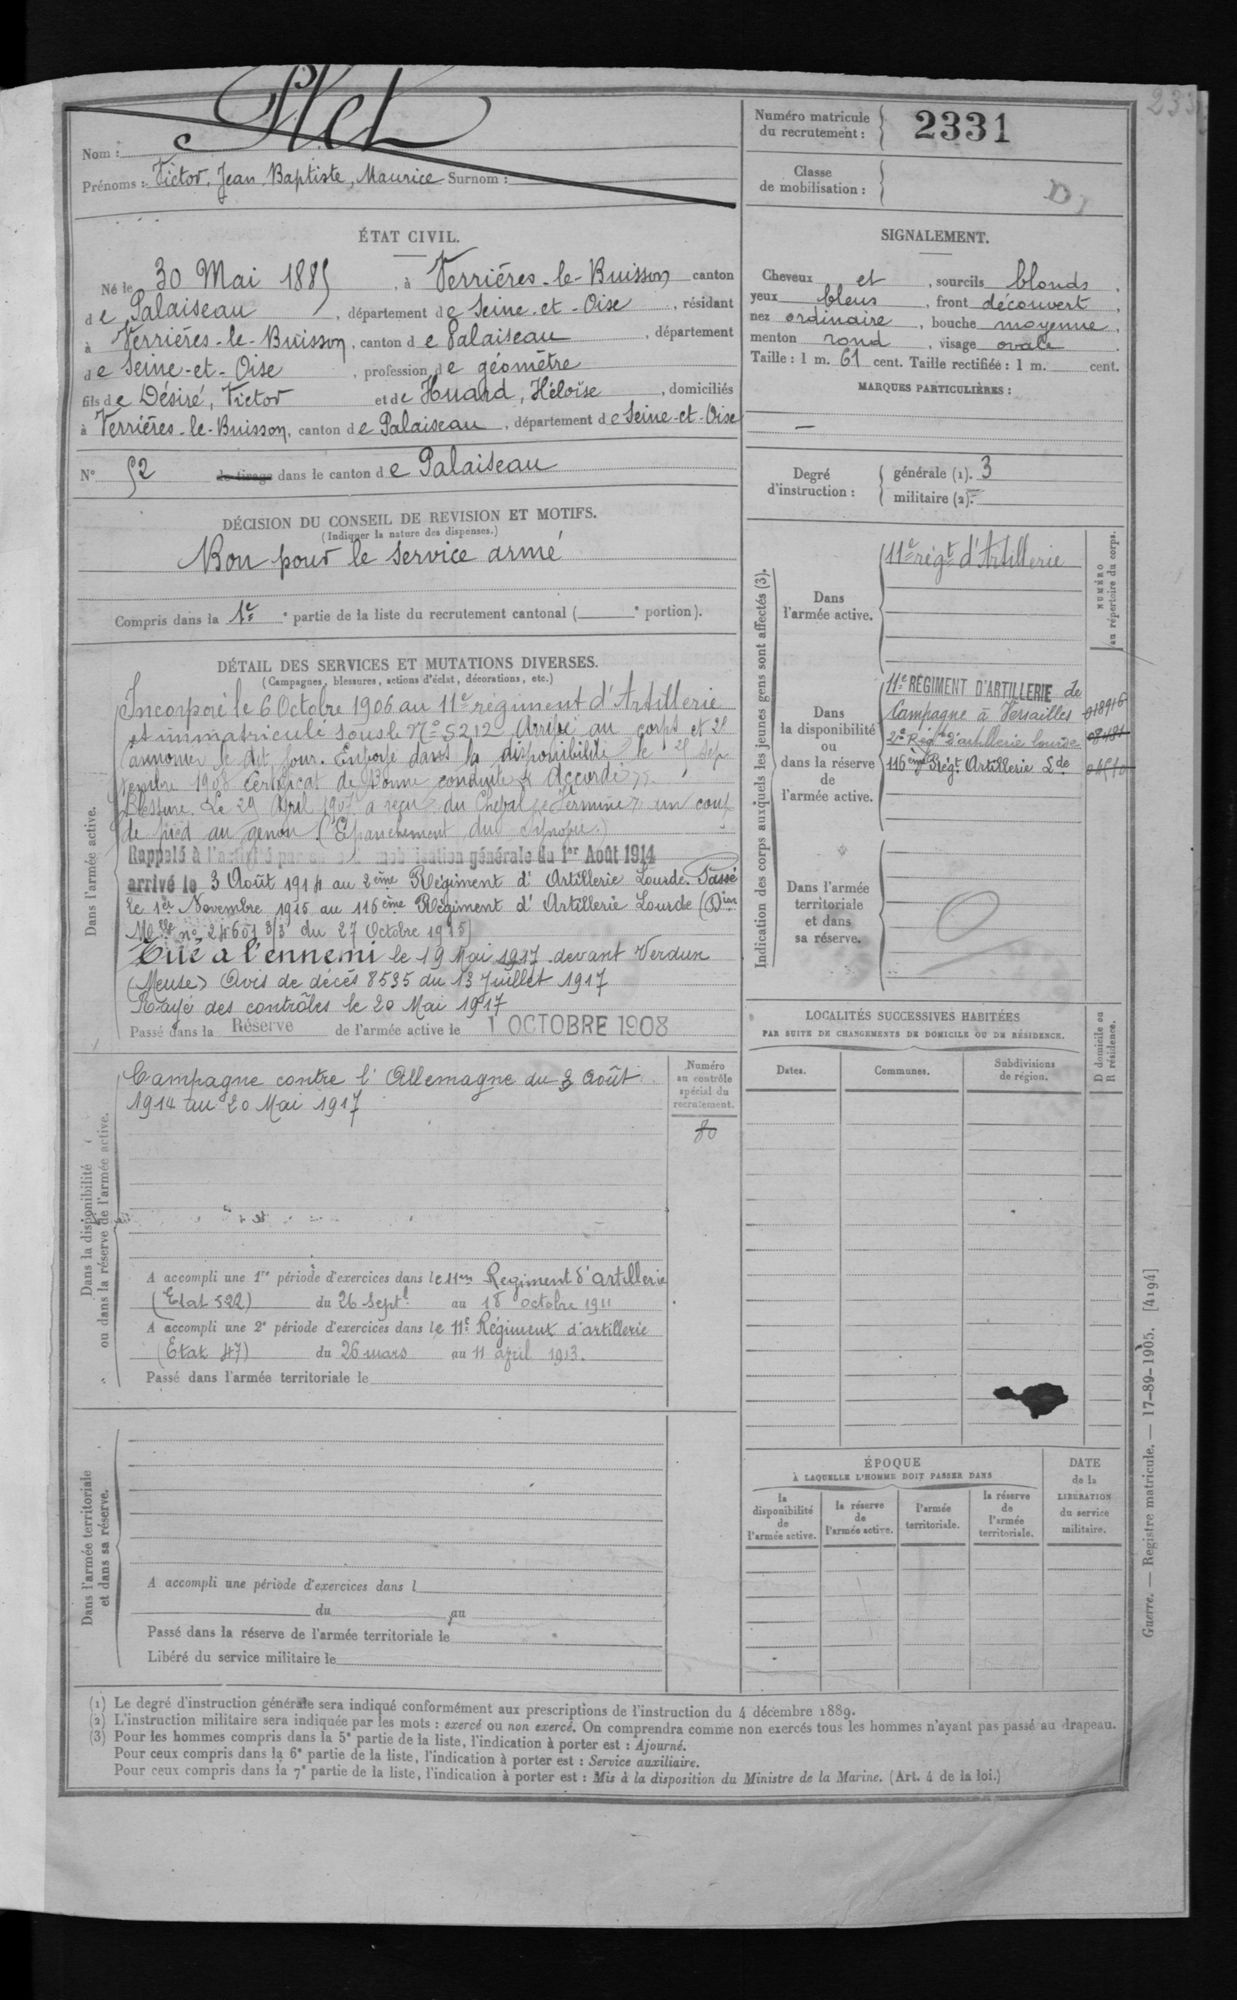 Nom :
Prénoms : Victor, Jean Baptiste, Maurice Surnom :
ÉTAT CIVIL.
Né le 30 Mai 1885, à Verrières-le-Buisson canton
de Palaiseau, département de Seine-et-Oise, résidant
à Verrières-le-Buisson, canton de Palaiseau, département
de Seine-et-Oise, profession de géomètre
fils de Désiré, Victor et de Huard, Héloïse, domiciliés
à Verrières-le-Buisson, canton de Palaiseau, département de Seine-et-Oise
N° 52 de tirage dans le canton de Palaiseau
DÉCISION DU CONSEIL DE REVISION ET MOTIFS.
(Indiquer la nature des dispenses.)
Bon pour le service armé
Compris dans la 1re e partie de la liste du recrutement cantonal ( e portion).
DÉTAIL DES SERVICES ET MUTATIONS DIVERSES.
(Campagnes, blessures, actions d'éclat, décorations, etc.)
Dans l'armée active.
Incorporé le 6 Octobre 1906 au 11e régiment d'Artillerie
et immatriculé sous le N° 5212. Arrivé au corps et 2e
canonnier le dit jour. Envoyé dans la disponibilité le 25 Sep
tembre 1908 Certificat de Bonne conduite Accordé
Blessure. Le 29 Avril 1907 a reçu du Cheval un coup
de pied au genou (Epanchement du Synovie)
Rappelé à l'activité mobilisation générale du 1er Août 1914
arrivé le 3 Août 1914 au 2ème Régiment d'Artillerie Lourde. Passé
le 1er Novembre 1915 au 116ème Régiment d'Artillerie Lourde (Don
Mlle n° 24601 3/3 du 27 Octobre 1915)
Tué à l'ennemi le 19 Mai 1917 devant Verdun
(Meuse) Avis de décès 8535 du 13 Juillet 1917
Rayé des contrôles le 20 Mai 1917
Passé dans la Réserve de l'armée active le 1 OCTOBRE 1908
Dans la disponibilité
ou dans la réserve de l'armée active.
Campagne contre l'Allemagne du 3 Août
1914 au 20 Mai 1917
Numéro
au contrôle
spécial du
recrutement.
80
A accompli une 1re période d'exercices dans le 11em Regiment d'artillerie
(Etat 522) du 26 Sept. au 18 octobre 1911
A accompli une 2e période d'exercices dans le 11e Régiment d'artillerie
(Etat 47) du 26 mars au 11 april 1913.
Passé dans l'armée territoriale le
Dans l'armée territoriale
et dans sa réserve.
A accompli une période d'exercices dans l
du au
Passé dans la réserve de l'armée territoriale le
Libéré du service militaire le
Numéro matricule
du recrutement :
2331
Classe
de mobilisation :
SIGNALEMENT.
Cheveux et, sourcils blonds,
yeux bleus, front découvert,
nez ordinaire, bouche moyenne,
menton rond, visage ovale.
Taille : 1 m. 61 cent. Taille rectifiée : 1 m. cent.
MARQUES PARTICULIÈRES :
—
Degré
d'instruction :
générale (1). 3
militaire (2).
Indication des corps auxquels les jeunes gens sont affectés (3).
NUMÉRO
au répertoire du corps.
Dans
l'armée active.
11e régt d'Artillerie
Dans
la disponibilité
ou
dans la réserve
de
l'armée active.
11e RÉGIMENT D'ARTILLERIE de
Campagne à Versailles
2e Régt d'artillerie lourde
116eme Régt Artillerie Lde
Dans l'armée
territoriale
et dans
sa réserve.
LOCALITÉS SUCCESSIVES HABITÉES
PAR SUITE DE CHANGEMENTS DE DOMICILE OU DE RÉSIDENCE.
D domicile ou
R résidence.
Dates.
Communes.
Subdivisions
de région.
ÉPOQUE
À LAQUELLE L'HOMME DOIT PASSER DANS
la
disponibilité
de
l'armée active.
la réserve
de
l'armée active.
l'armée
territoriale.
la réserve
de
l'armée
territoriale.
DATE
de la
LIBÉRATION
du service
militaire.
(1) Le degré d'instruction générale sera indiqué conformément aux prescriptions de l'instruction du 4 décembre 1889.
(2) L'instruction militaire sera indiquée par les mots : exercé ou non exercé. On comprendra comme non exercés tous les hommes n'ayant pas passé au drapeau.
(3) Pour les hommes compris dans la 5e partie de la liste, l'indication à porter est : Ajourné.
Pour ceux compris dans la 6e partie de la liste, l'indication à porter est : Service auxiliaire.
Pour ceux compris dans la 7e partie de la liste, l'indication à porter est : Mis à la disposition du Ministre de la Marine. (Art. 4 de la loi.)
Guerre. — Registre matricule. — 17-89-1905. [4194]